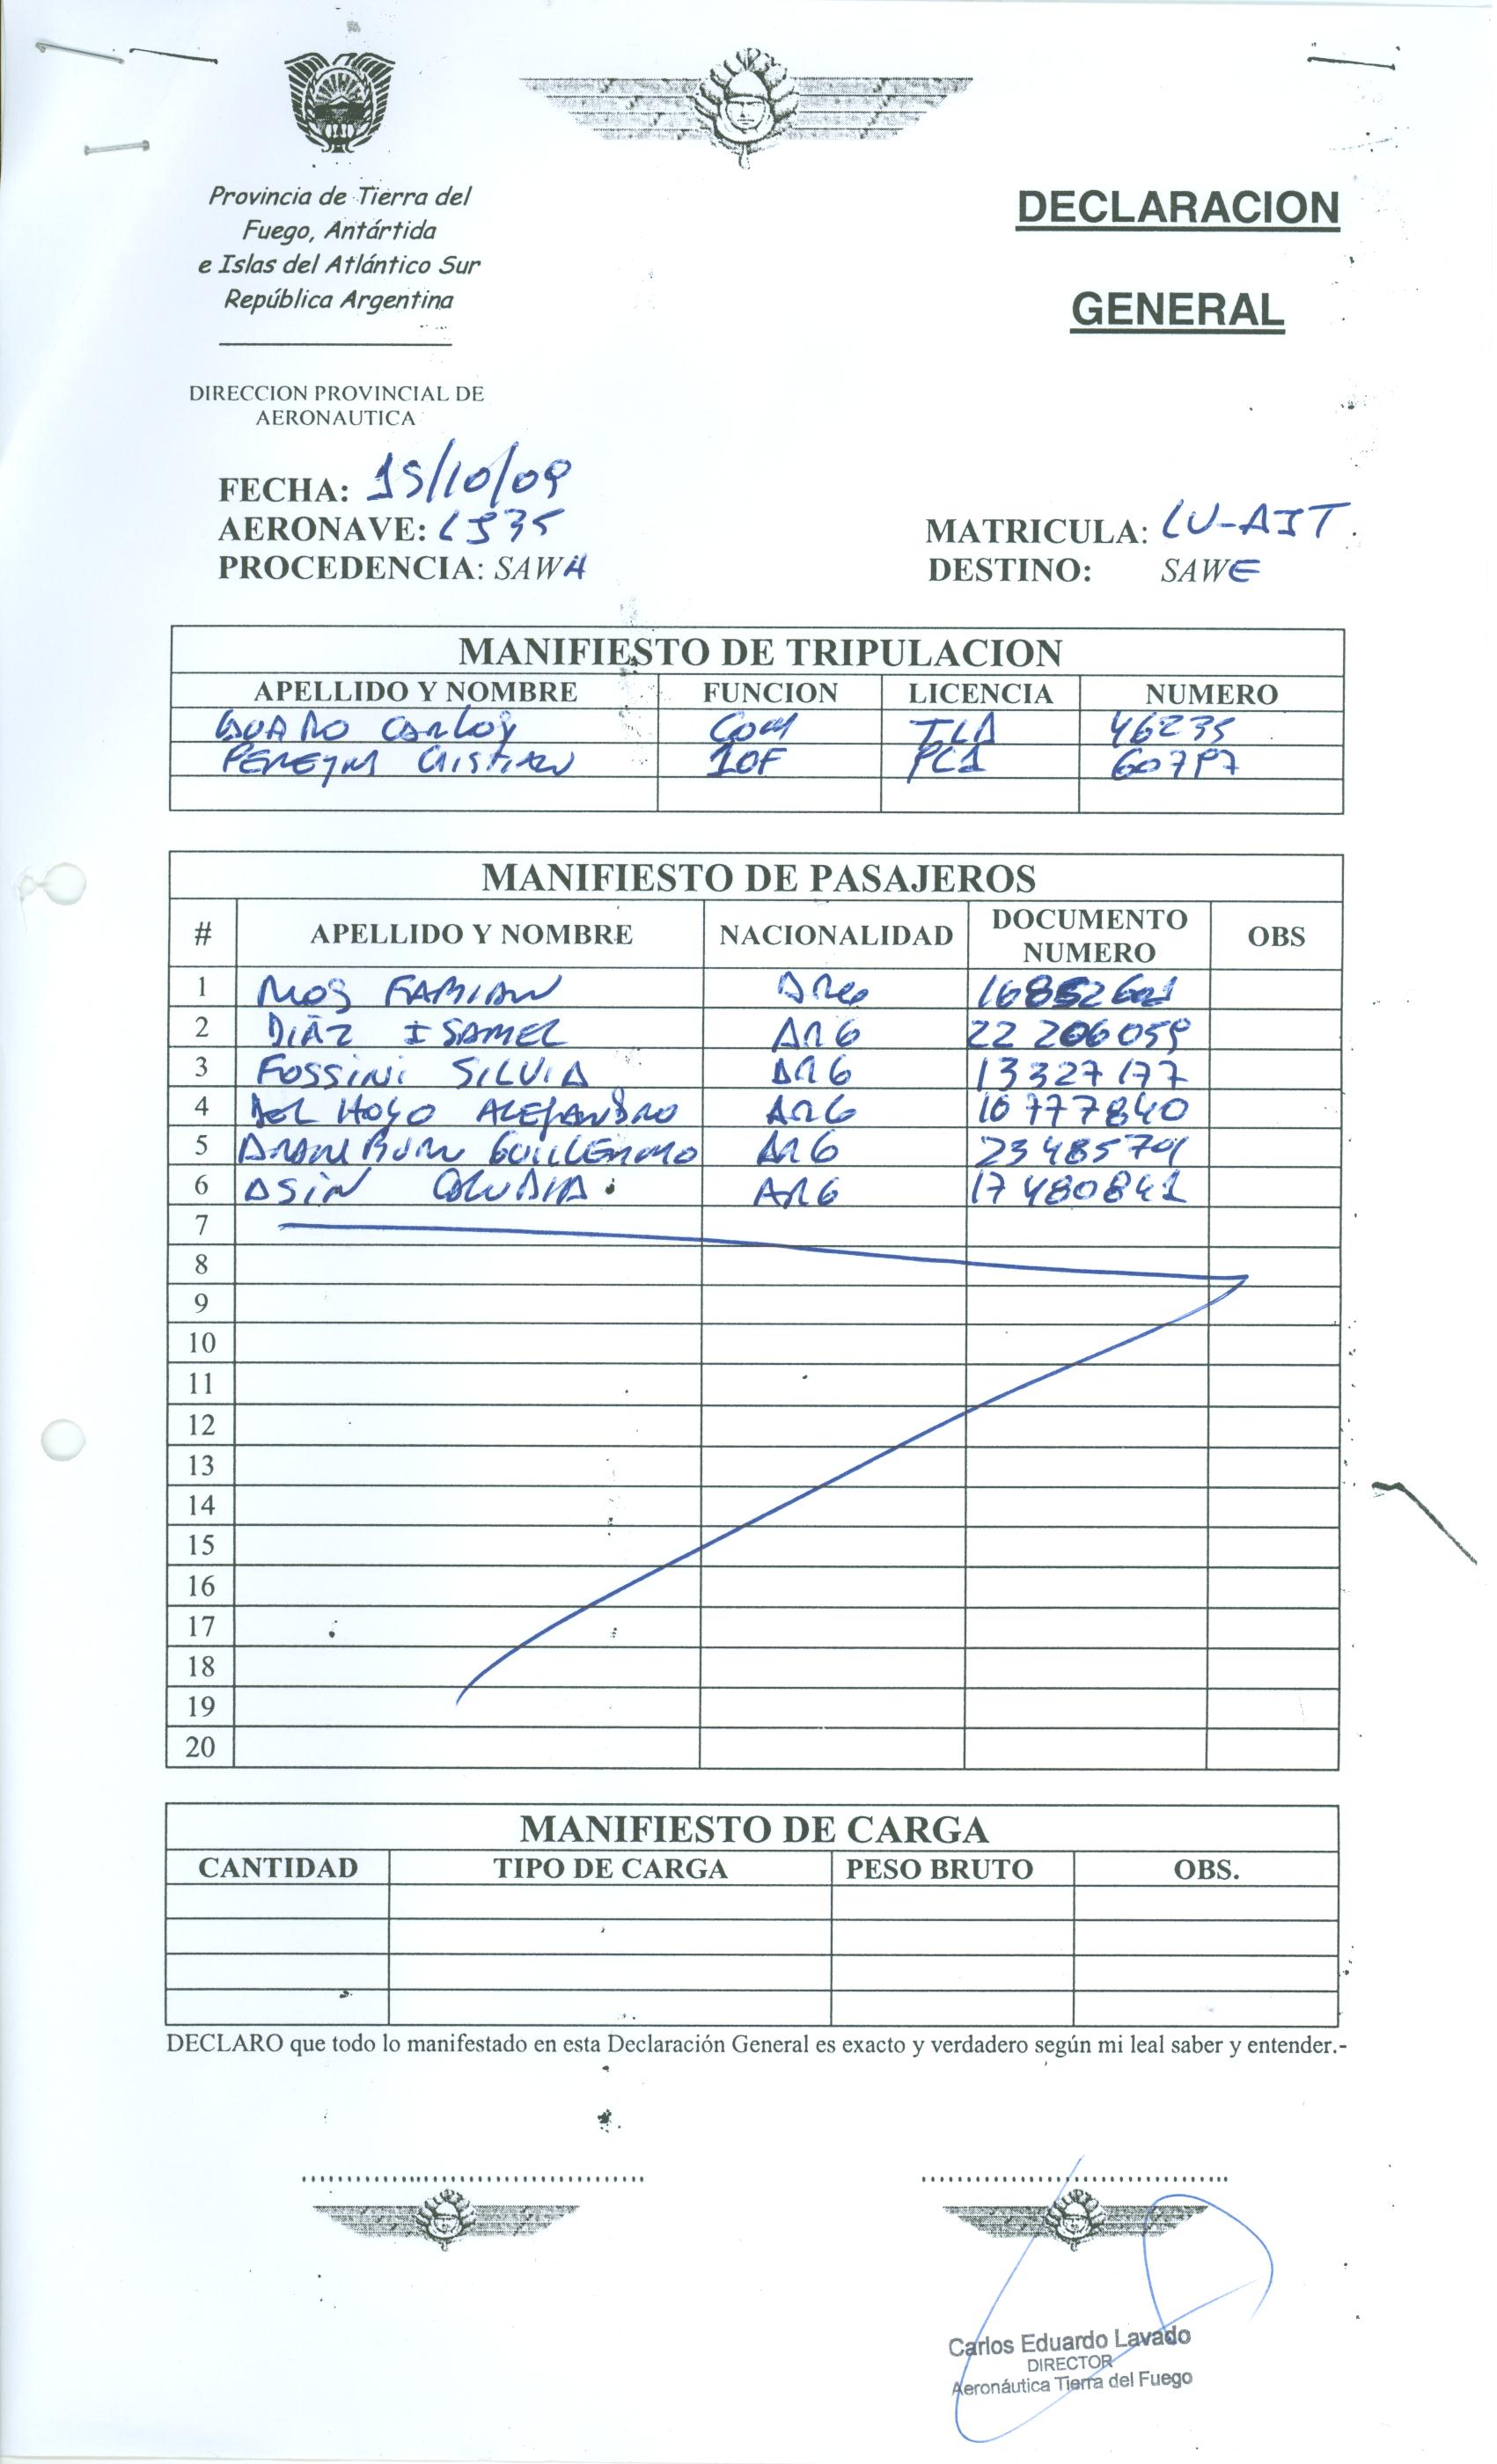 Provincia de Tierra del
Fuego, Antártida
e Islas del Atlántico Sur
República Argentina
DECLARACION
GENERAL
DIRECCION PROVINCIAL DE
AERONAUTICA
FECHA: 15/10/09
AERONAVE: LJ35 MATRICULA: LV-AIT
PROCEDENCIA: SAWH DESTINO: SAWE
MANIFIESTO DE TRIPULACION
APELLIDO Y NOMBRE FUNCION LICENCIA NUMERO
Carlos COM TLA 46235
PEREYRA CRISTIAN 1OF PC1 60787
MANIFIESTO DE PASAJEROS
# APELLIDO Y NOMBRE NACIONALIDAD DOCUMENTO NUMERO OBS
1 FABIAN ARG
2 DIAZ ISAMEL ARG 22 206059
3 FOSSINI SILVIA ARG 13327177
4 DEL HOYO ALEJANDRO ARG 10777840
5 ARAMBURU GUILLERMO ARG
6 ASIN CLAUDIA ARG 17480841
7
8
9
10
11
12
13
14
15
16
17
18
19
20
MANIFIESTO DE CARGA
CANTIDAD TIPO DE CARGA PESO BRUTO OBS.
DECLARO que todo lo manifestado en esta Declaración General es exacto y verdadero según mi leal saber y entender.-
Carlos Eduardo Lavado
DIRECTOR
Aeronáutica Tierra del Fuego